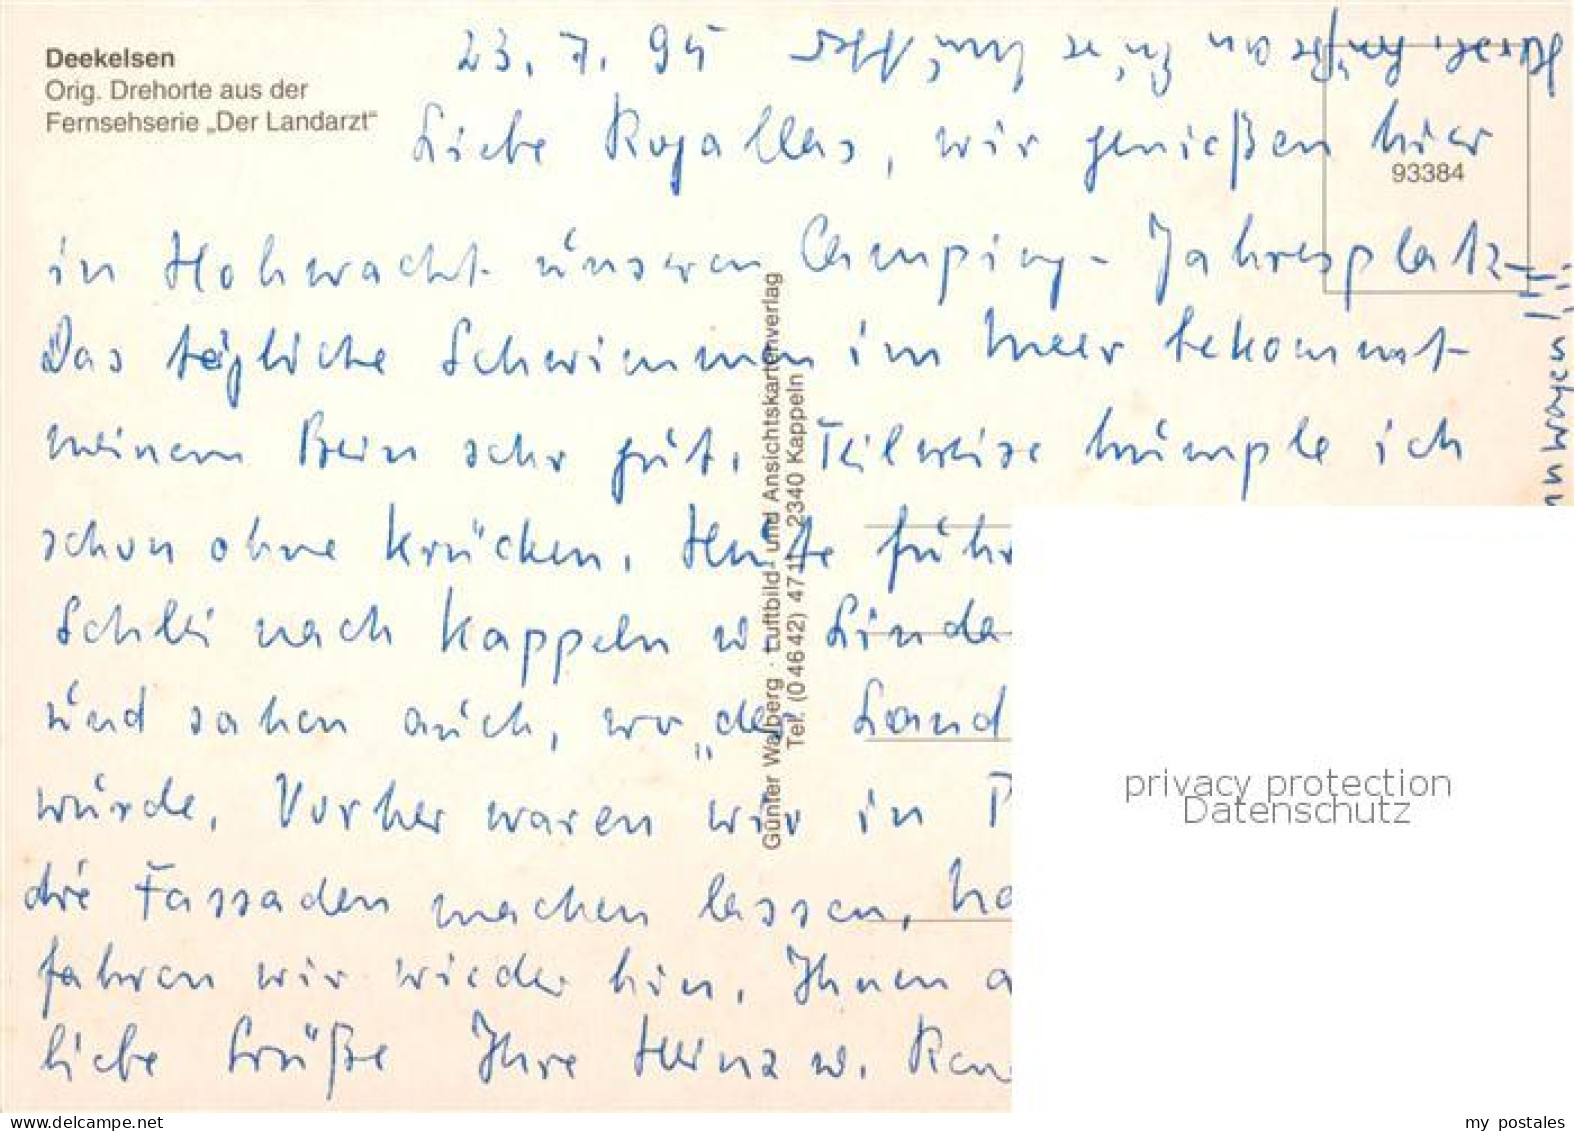 Deekelsen
Orig. Drehorte aus der
Fernsehserie „Der Landarzt“
23. 7. 95
Liebe Rogallas, wir genießen hier
93384
in Hohwacht unseren Camping-Jahresplatz
Das tägliche Schwimmen im Meer bekommt
meinem Bein sehr gut. Teilweise humple ich
schon ohne Krücken. Heute
Schlei nach Kappeln u.
und sahen auch, wo „der Land
wurde. Vorher waren wir in
die Fassaden machen lassen,
fahren wir wieder hin. Ihnen
liebe Grüße Ihre Heinz u.
Günter Walberg · Luftbild- und Ansichtskartenverlag
Tel. (04642) 4711, 2340 Kappeln
privacy protection
Datenschutz
delcampe.net
my_postales